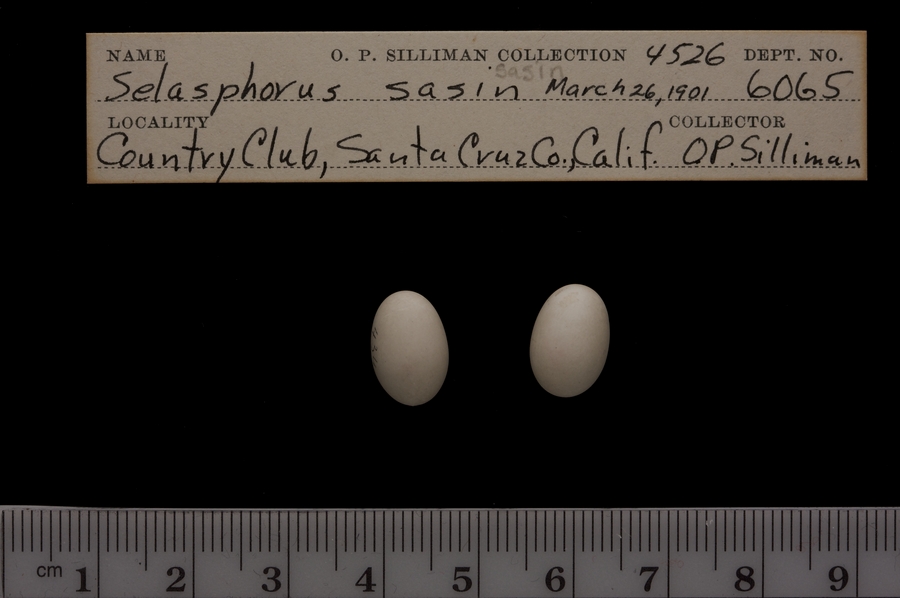 NAME O. P. SILLIMAN COLLECTION 4526 DEPT. NO.
sasin
Selasphorus sasin March 26, 1901 6065
LOCALITY COLLECTOR
Country Club, Santa Cruz Co., Calif. O.P. Silliman
cm 1 2 3 4 5 6 7 8 9